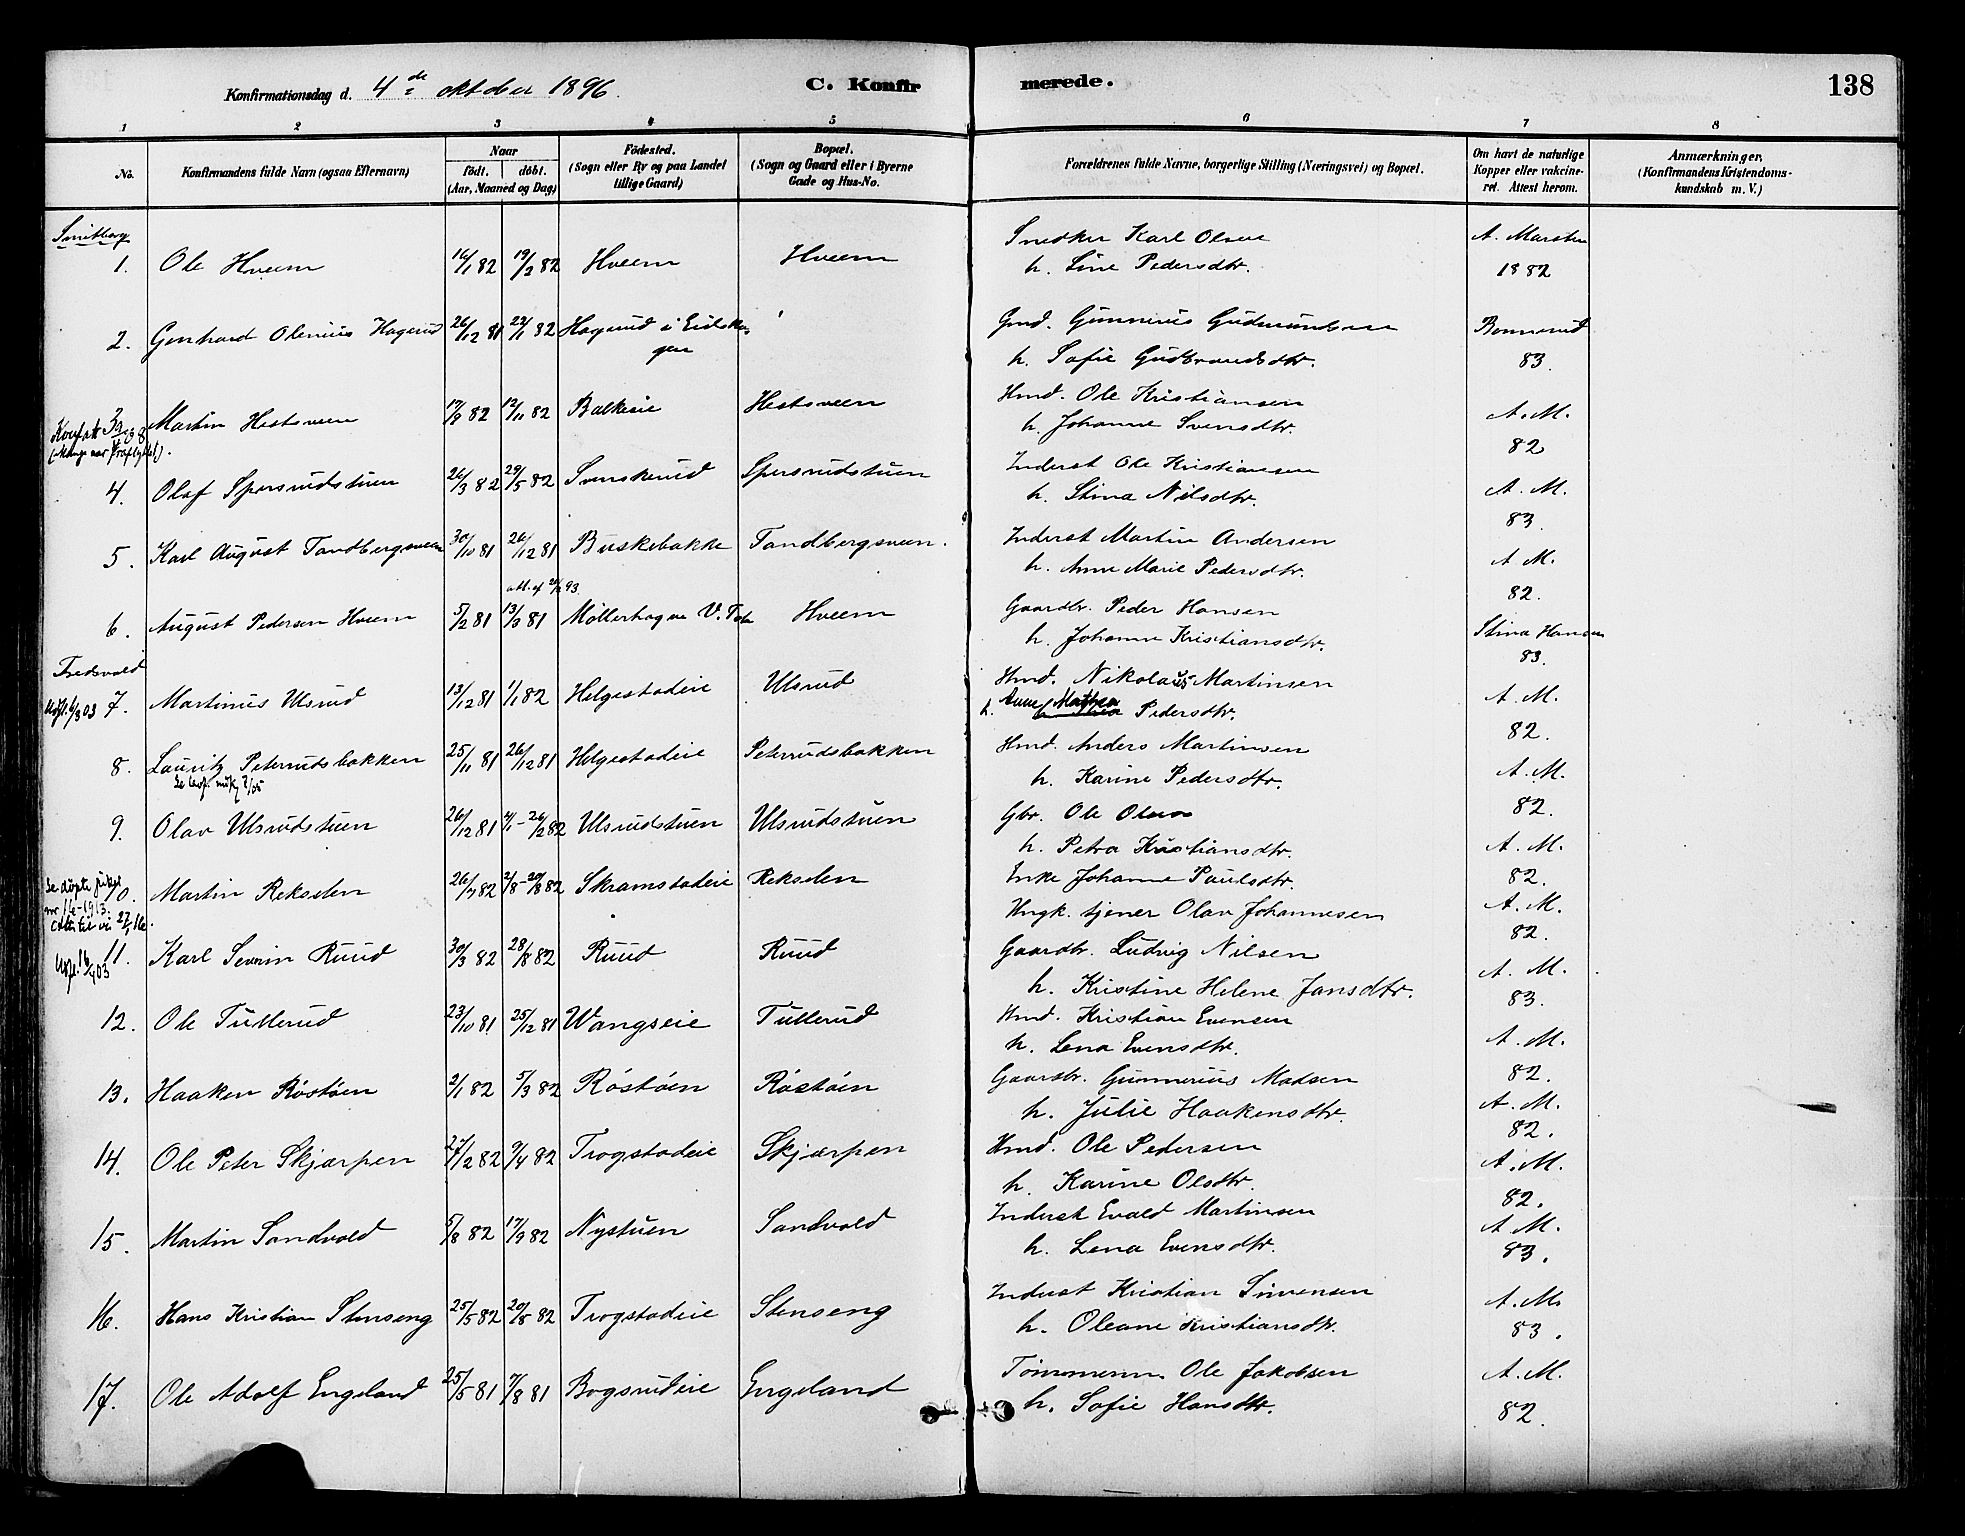 Konfirmationsdag d. 4de oktober 1896. C. Konfirmerede. 138
1 2 3 4 5 6 7 8
No. Konfirmandens fulde Navn (ogsaa Efternavn) Naar födt. döbt. (Aar, Maaned og Dag) Födested. (Sogn eller By og paa Landet tillige Gaard) Bopæl. (Sogn og Gaard eller i Byerne Gade og Hus-No. Forældrenes fulde Navne, borgerlige Stilling (Næringsvei) og Bopæl. Om havt de naturlige Kopper eller vakcineret. Attest herom. Anmærkninger, (Konfirmandens Kristendomskundskab m. V.)
Smitberg
1. Ole Hveem 16/1 82 19/2 82 Hveem Hveem Snedker Karl Olsen A. Marsten
h. Line Pedersdtr. 1882
2. Genhard Olenius Hagerud 26/12 81 22/1 82 Hagerud i Eidskogen Gmd. Gunnerius Gudmundsen Bonnerud
h. Sofie Gudbrandsdtr. 83.
3. Martin Hestsveen 17/9 82 12/11 82 Balkeeie Hestsveen Hmd. Ole Kristiansen A. M.
h. Johanne Svensdtr. 82
4. Olaf Spersrudstuen 26/3 82 29/5 82 Svenskerud Spersrudstuen Inderst Ole Kristiansen A. M.
h. Stina Nilsdtr. 83.
5. Karl August Tandbergsveen 30/10 81 26/12 81 Buskebakke Tandbergsveen. Inderst Martin Andersen A M.
h. Anne Marie Pedersdtr. 82.
6. August Pedersen Hveem 5/2 81 13/3 81 Möllerhagen V. Toten Hveem Gaardbr. Peder Hansen Stina Hansen
h. Johanne Kristiansdtr. 83.
Fredsvold
7. Martinius Ulsrud 13/12 81 1/1 82 Helgestadeie Ulsrud Hmd. Nikolaus Martinsen A. M.
h. Anne Mathea Pedersdtr. 82.
8. Lauritz Peterudsbakken 25/11 81 26/12 81 Helgestadeie Peterudsbakken Hmd. Anders Martinsen A. M.
h. Karine Pedersdtr. 82.
9. Olav Ulsrudstuen 26/12 81 2/1 - 26/2 82 Ulsrudstuen Ulsrudstuen Gbr. Ole Olsen A. M.
h. Petra Kristiansdtr. 82.
10. Martin Rekselen 26/7 82 2/8 - 20/8 82 Skramstadeie Rekselen Enke Johanne Paulsdtr. A. M.
Ungk. tjener Olav Johannesen 82.
11. Karl Severin Ruud 30/3 82 28/8 82 Ruud Ruud Gaardbr. Ludvig Nilsen A. M.
h. Kristine Helene Jansdtr. 83.
12. Ole Tullerud 23/10 81 25/12 81 Wangseie Tullerud Hmd. Kristian Evensen A. M.
h. Lena Evensdtr. 82.
13. Haaken Röstöen 2/1 82 5/3 82 Röstöen Röstöen Gaardbr. Gunnerius Madsen A. M.
h. Julie Haakensdtr. 82.
14. Ole Peter Skjærpen 27/2 82 9/4 82 Trogstadeie Skjærpen Hmd. Ole Pedersen A. M.
h. Karine Olsdtr. 82.
15. Martin Sandvold 5/8 82 17/9 82 Nystuen Sandvold Inderst Evald Martinsen A. M.
h. Lena Evensdtr. 83.
16. Hans Kristian Stenseng 25/5 82 20/8 82 Trogstadeie Stenseng Inderst Kristian Simensen A. M.
h. Oleane Kristiansdtr. 83.
17. Ole Adolf Engeland 25/5 81 7/8 81 Bogsrudeie Engeland Tömmerm. Ole Jakobsen A. M.
h. Sofie Hansdtr. 82.